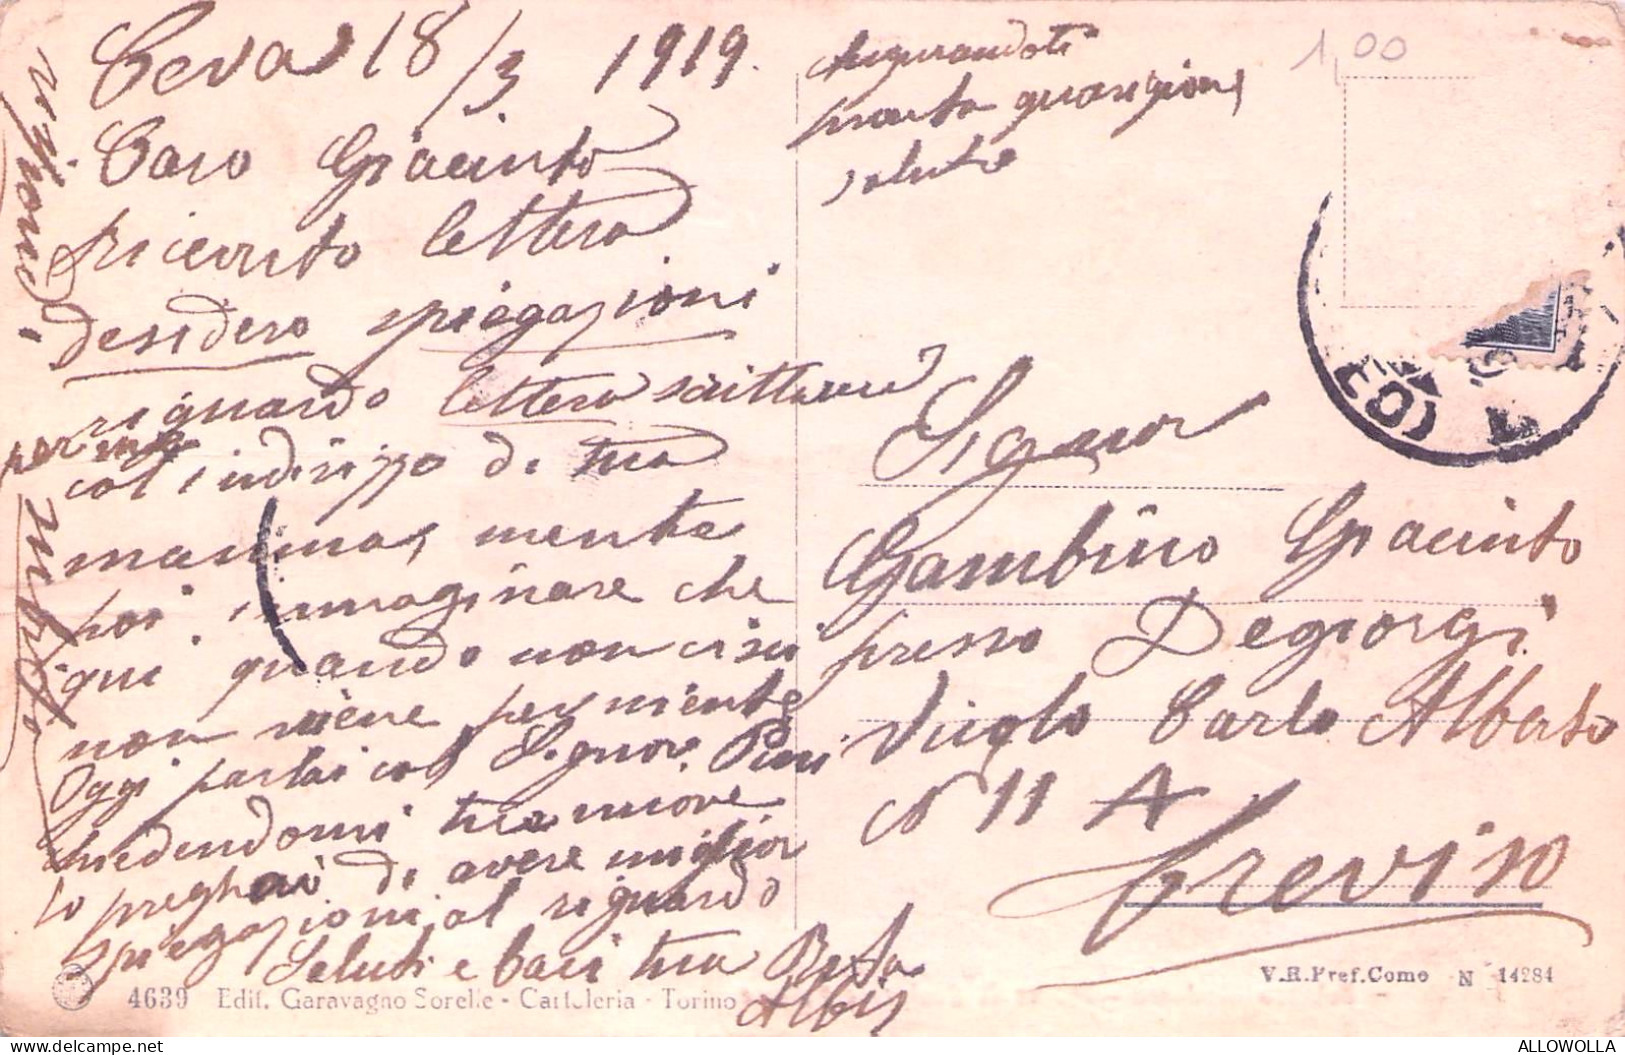 Ceva 18/3 1919.
Caro Giacinto
Ricevuto lettera
desidero spiegazioni
riguardo lettera scittami
col indirizzo di tua
mamma, mentre
poi immaginare che
qui quando non ci sei
non viene per niente
Oggi parlai col Signore Pini
chiedendomi tue nuove
lo pregherai di avere miglior
spiegazioni al riguardo
Saluti e baci tua
per me
Augurandoti
pronta guarigione
salute
1,00
Signor
Gambino Giacinto
presso Degiorgi
Vicolo Carlo Alberto
N 11 A
Treviso
V.R.Pref.Como N 14284
4639 Edit. Garavagno Sorelle - Cartoleria - Torino
ALLOWOLLA